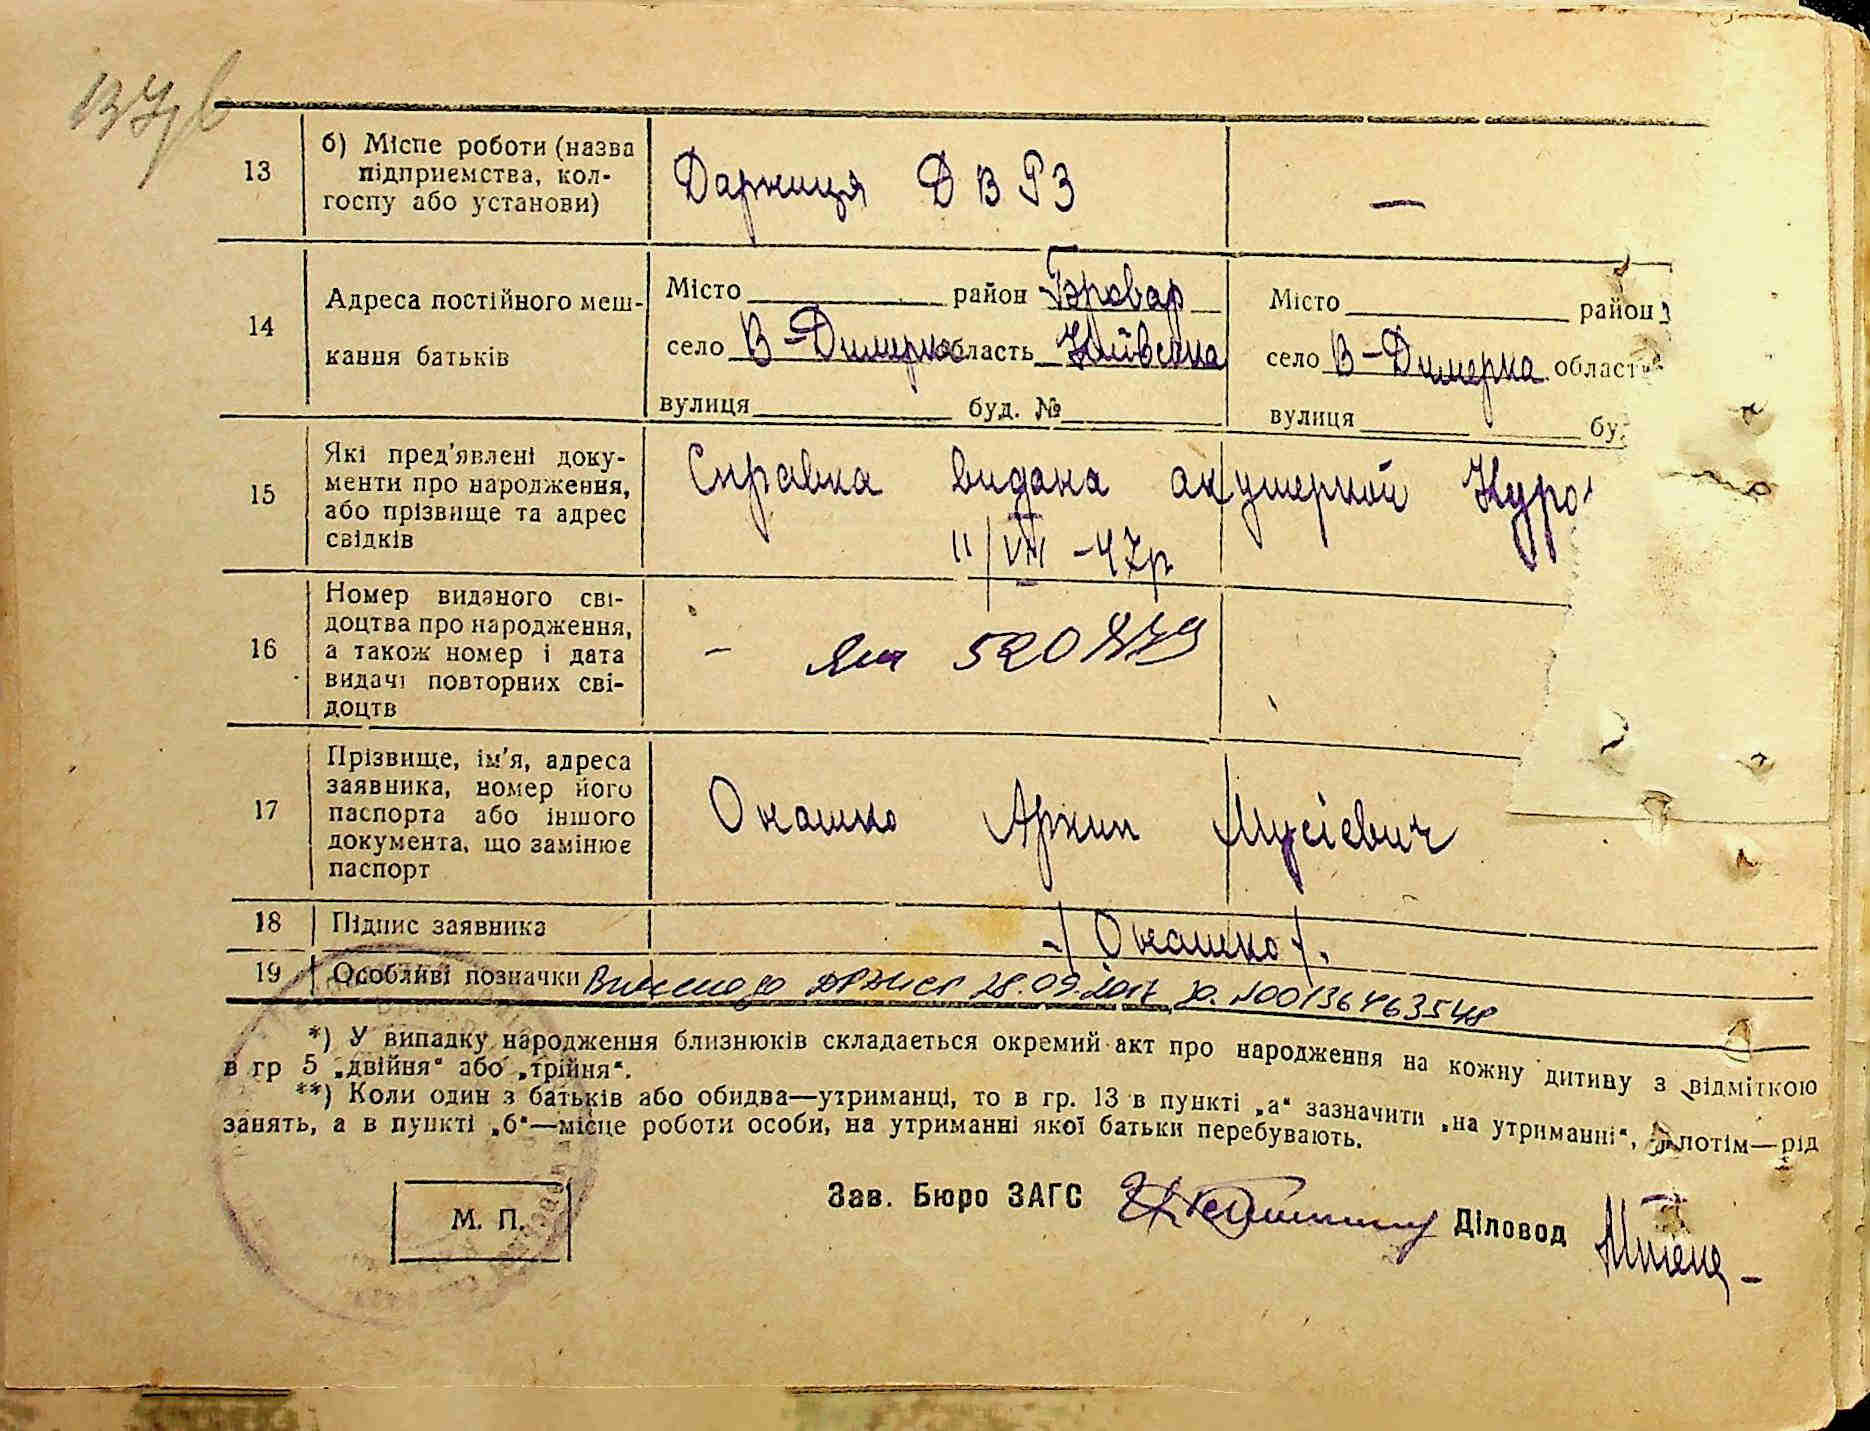 13
б) Місце роботи (назва
підприємства, кол-
госпу або установи)
Дарниця Д В Р З
—
14
Адреса постійного меш-
кання батьків
Місто район Бровар
село В-Димерка область Київська
вулиця буд. №
Місто район
село В-Димерка област
вулиця бу
15
Які пред'явлені доку-
менти про народження,
або прізвище та адрес
свідків
Справка видана акушеркой
11/VIII -47р
16
Номер виданого сві-
доцтва про народження,
а також номер і дата
видачі повторних сві-
доцтв
–
17
Прізвище, ім'я, адреса
заявника, номер його
паспорта або іншого
документа, що замінює
паспорт
Онашко Архип Мусієвич
18
Підпис заявника
/Онашко/.
19
Особливі позначки Внесено до ДРАЦСГ 28.09.2017 р. №00136463548
*) У випадку народження близнюків складається окремий акт про народження на кожну дитину з відміткою
в гр 5 „двійня“ або „трійня“.
**) Коли один з батьків або обидва—утриманці, то в гр. 13 в пункті „а“ зазначити „на утриманні“, а потім—рід
занять, а в пункті „б“—місце роботи особи, на утриманні якої батьки перебувають.
М. П.
Зав. Бюро ЗАГС
Діловод